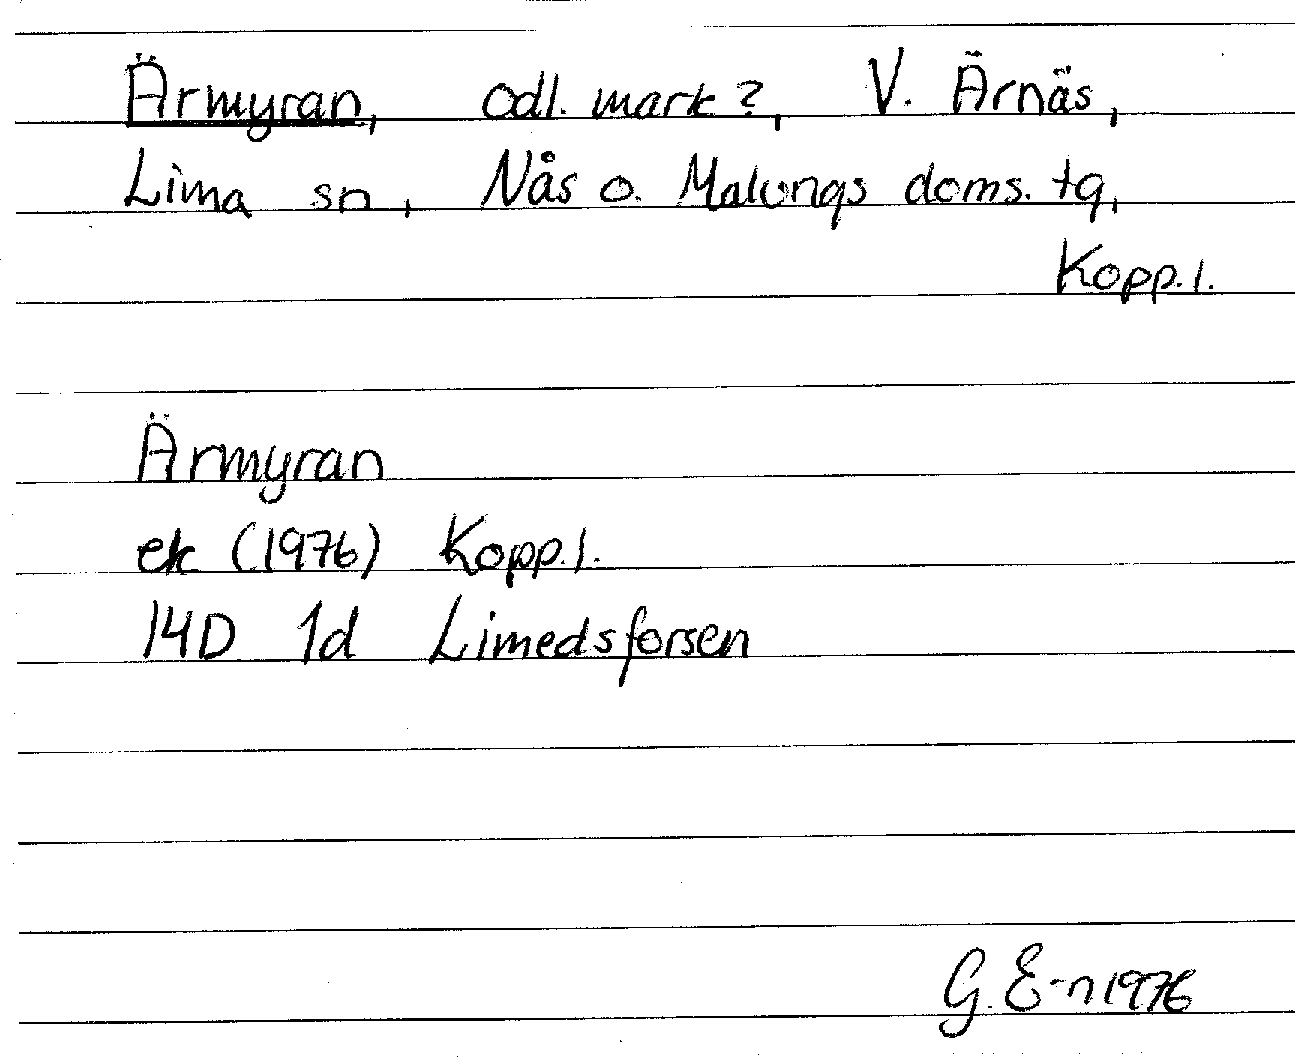 Ärmyran, odl. mark?, V. Ärnäs,
Lima sn, Nås o. Malungs doms. tg,
Kopp. l.
Ärmyran
ek (1976) Kopp. l.
14D 1d Limedsforsen
G. E-n 1976